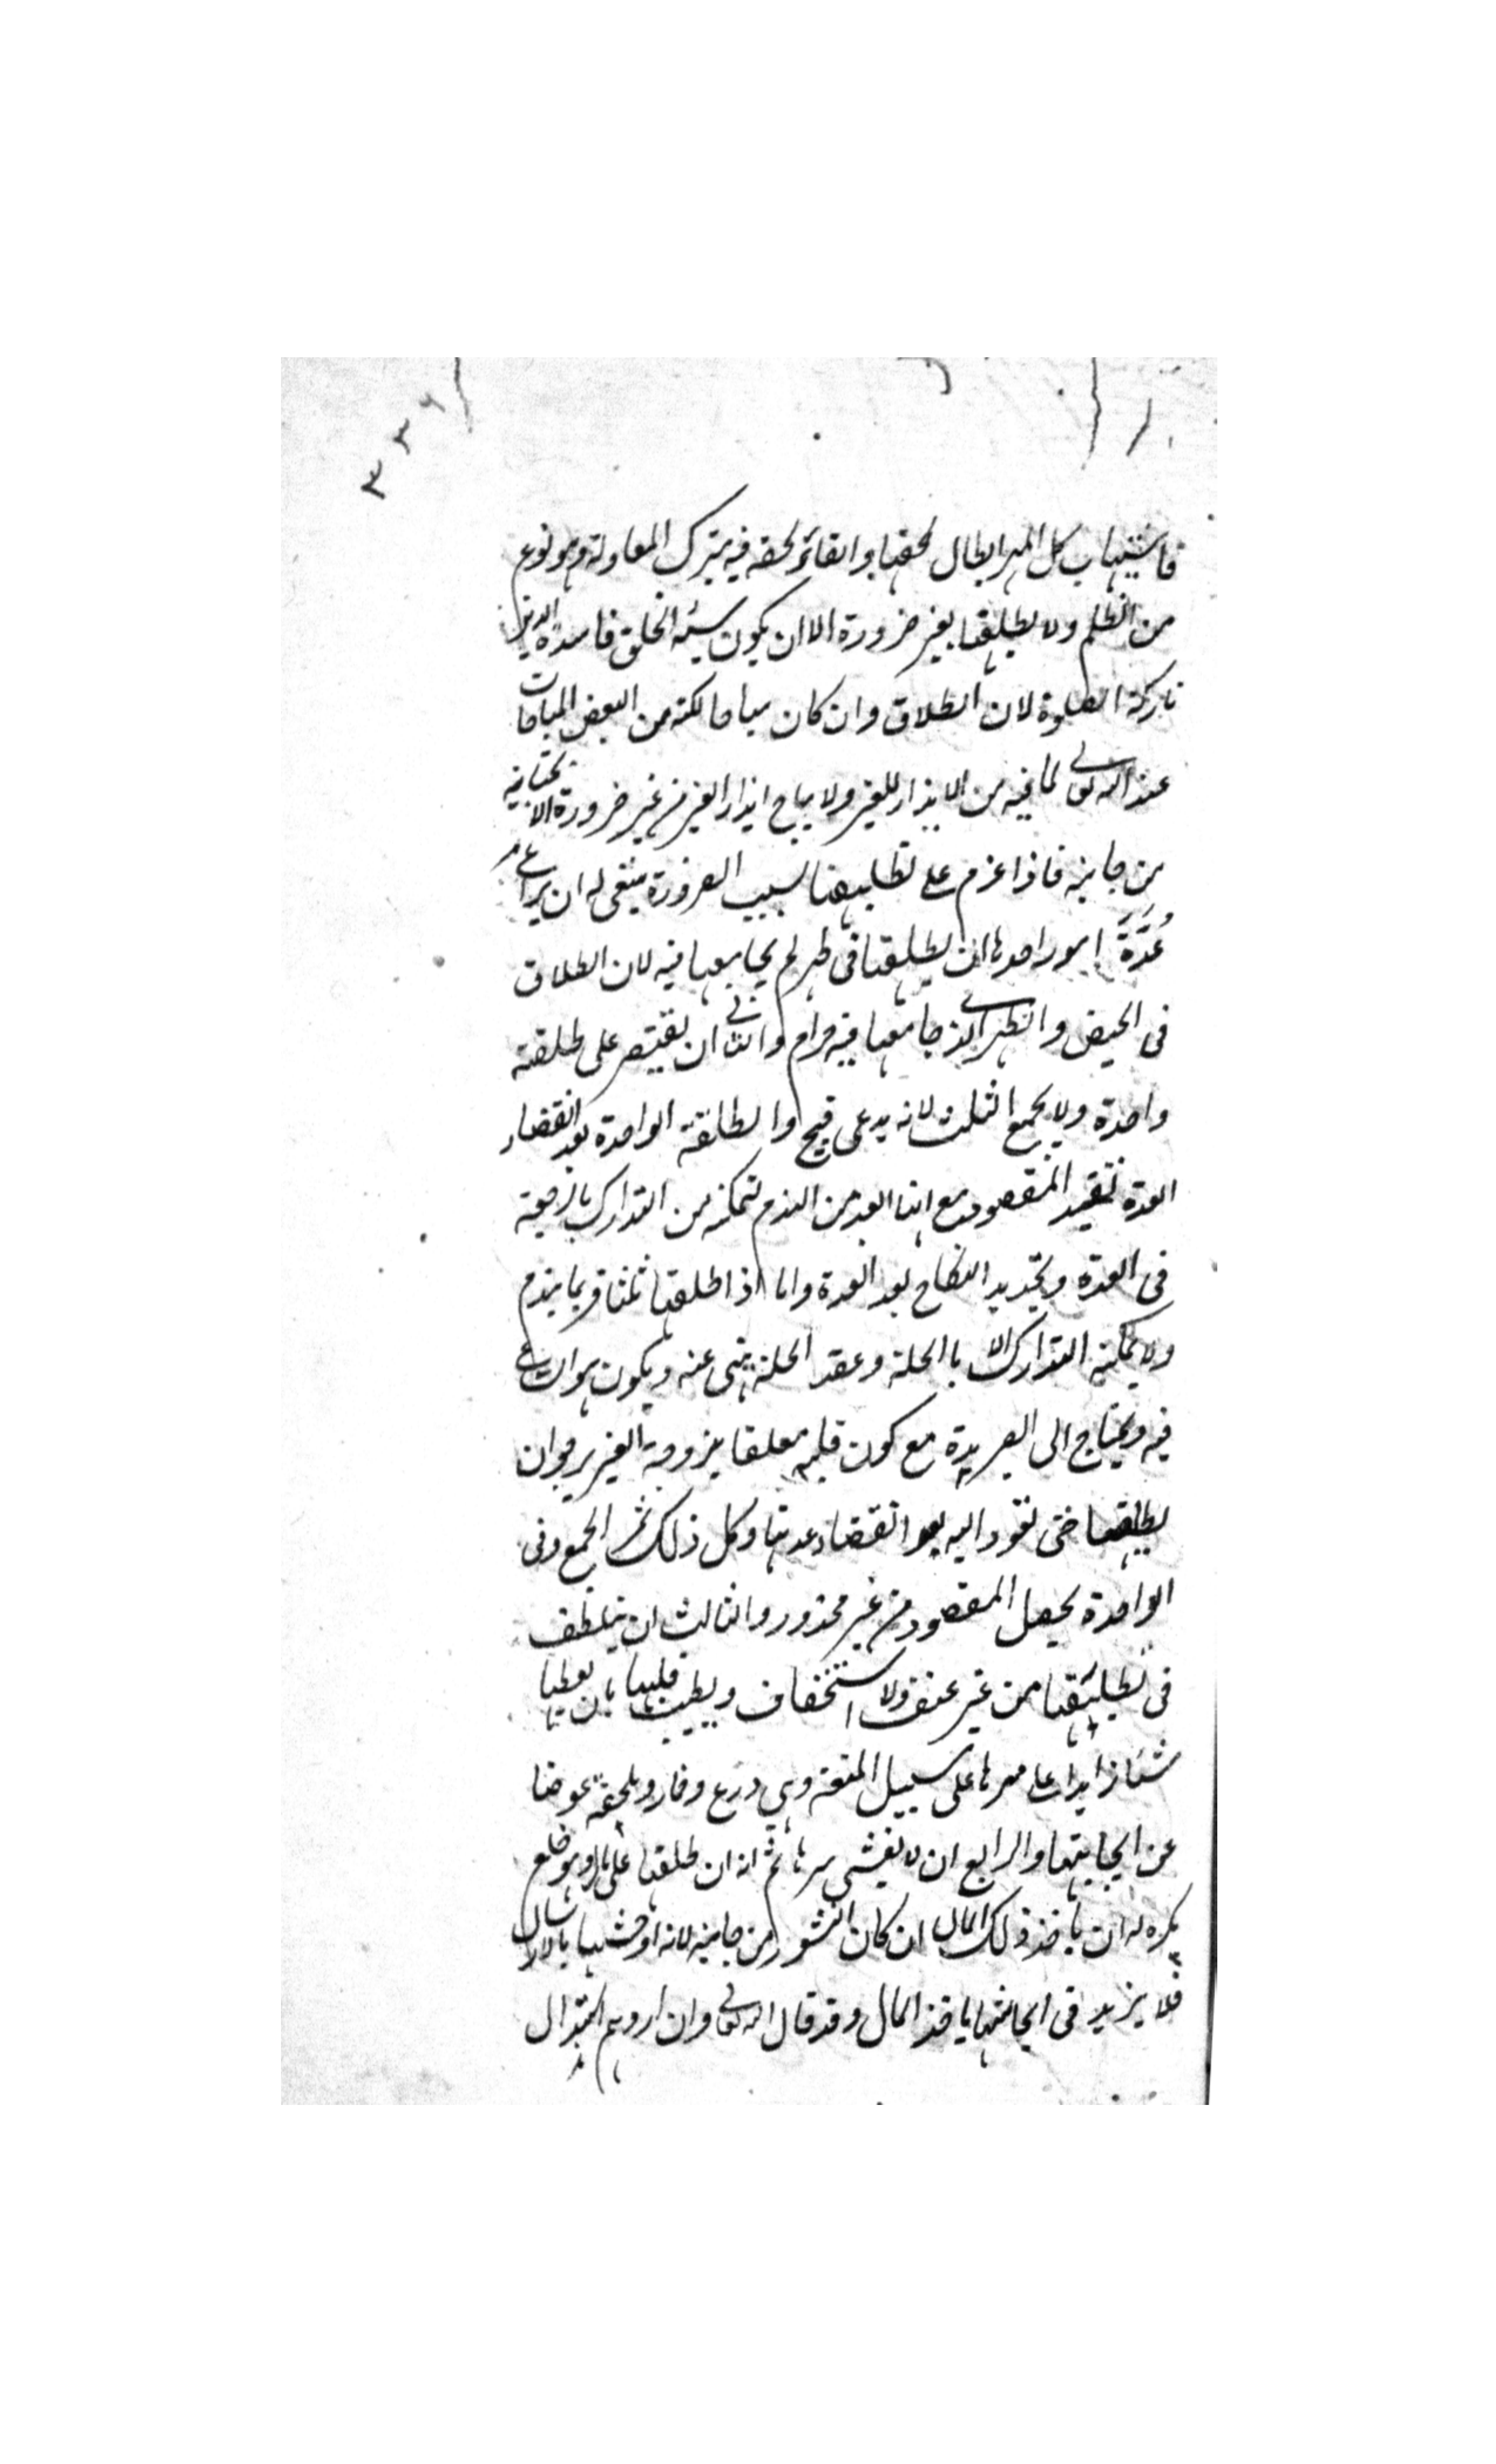 ٣٣٦
فاستيهاب كل المهر ابطال لحقها وابقاء لحقه فيه بترك المعادلة وهو نوع
من الظلم ولا يطلقها بغير ضرورة الا ان يكون سيئة الخلق فاسدة الدين
تاركة الصلوة لان الطلاق وان كان مباحا لكنه من ابغض المباحات
عند الله تعالى لما فيه من الايذاء للغير ولا يباح ايذاء الغير من غير ضرورة الا بجناية
من جانبه فاذا عزم على تطليقها بسبب الضرورة ينبغي له ان يراعى
عدة امور احدها ان يطلقها في طهر لم يجامعها فيه لان الطلاق
في الحيض والطهر الذي جامعها فيه حرام والثاني ان يقتصر على طلقة
واحدة ولا يجمع الثلث لانه بدعى قبيح والطلقة الواحدة بعد انقضاء
العدة تفيد المقصود مع انها ابعد من الندم لتمكنه من التدارك بالرجعة
في العدة وتجديد النكاح بعد العدة واما اذا طلقها ثلثا فربما يندم
ولا يمكنه التدارك الا بالحلة وعقد الحلة ينهى عنه ويكون هو الساعي
فيه ويحتاج الى الصبر مدة مع كون قلبه معلقا بزوجة الغير يرجو ان
يطلقها حتى تعود اليه بعد انقضاء عدتها وكل ذلك ثمرة الجمع وفى
الواحدة يحصل المقصود من غير محذور والثالث ان يتلطف
في تطليقها من غير عنف ولا استخفاف ويطيب قلبها بان يعطيها
شيئا زايدا على مهرها على سبيل المتعة وهي درع وخمار وملحفة عوضا
عن ايحاشها والرابع ان لا يفشى سرها ثم انه ان طلقها على مال وهو خلع
يكره له ان ياخذ ذلك المال ان كان النشوز من جانبه لانه اوحشها بالاستبدال
فلا يزيد في ايحاشها باخذ المال وقد قال الله تعالى وان اردتم استبدال